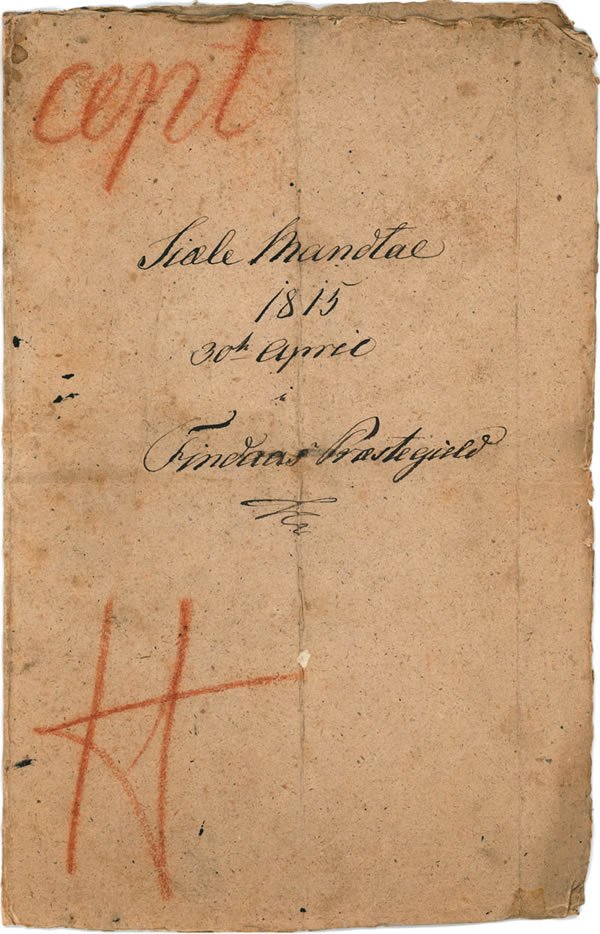 cept
Siæle Mandtal
1815
30th April
i
Findaas Præstegield
H